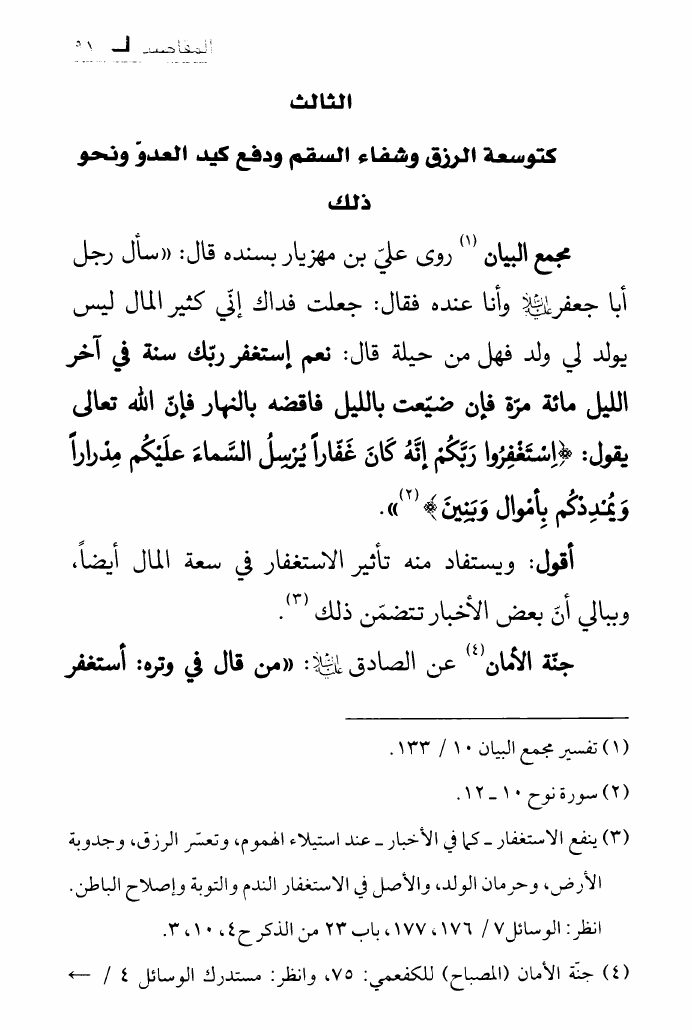 المقاصد لـ ٥١
الثالث
كتوسعة الرزق وشفاء السقم ودفع كيد العدوّ ونحو
ذلك
مجمع البيان (١) روى عليّ بن مهزيار بسنده قال: «سأل رجل
أبا جعفر عليه السلام وأنا عنده فقال: جعلت فداك إنّي كثير المال ليس
يولد لي ولد فهل من حيلة قال: نعم إستغفر ربّك سنة في آخر
الليل مائة مرّة فإن ضيّعت بالليل فاقضه بالنهار فإنّ الله تعالى
يقول: ﴿اِسْتَغْفِرُوا رَبَّكُمْ إنَّهُ كَانَ غَفّاراً يُرْسِلُ السَّماءَ علَيْكُم مِدْراراً
وَيُمْدِدْكُم بِأمْوال وَبَنِينَ﴾(٢)».
أقول: ويستفاد منه تأثير الاستغفار في سعة المال أيضاً،
وببالي أنّ بعض الأخبار تتضمّن ذلك (٣).
جنّة الأمان(٤) عن الصادق عليه السلام: «من قال في وتره: أستغفر
(١) تفسير مجمع البيان ١٠ / ١٣٣.
(٢) سورة نوح ١٠ ـ ١٢.
(٣) ينفع الاستغفار ـ كما في الأخبار ـ عند استيلاء الهموم، وتعسّر الرزق، وجدوبة
الأرض، وحرمان الولد، والأصل في الاستغفار الندم والتوبة وإصلاح الباطن.
انظر: الوسائل ٧ / ١٧٦، ١٧٧، باب ٢٣ من الذكر ح٤، ١٠، ٣.
(٤) جنّة الأمان (المصباح) للكفعمي: ٧٥، وانظر: مستدرك الوسائل ٤ / ←